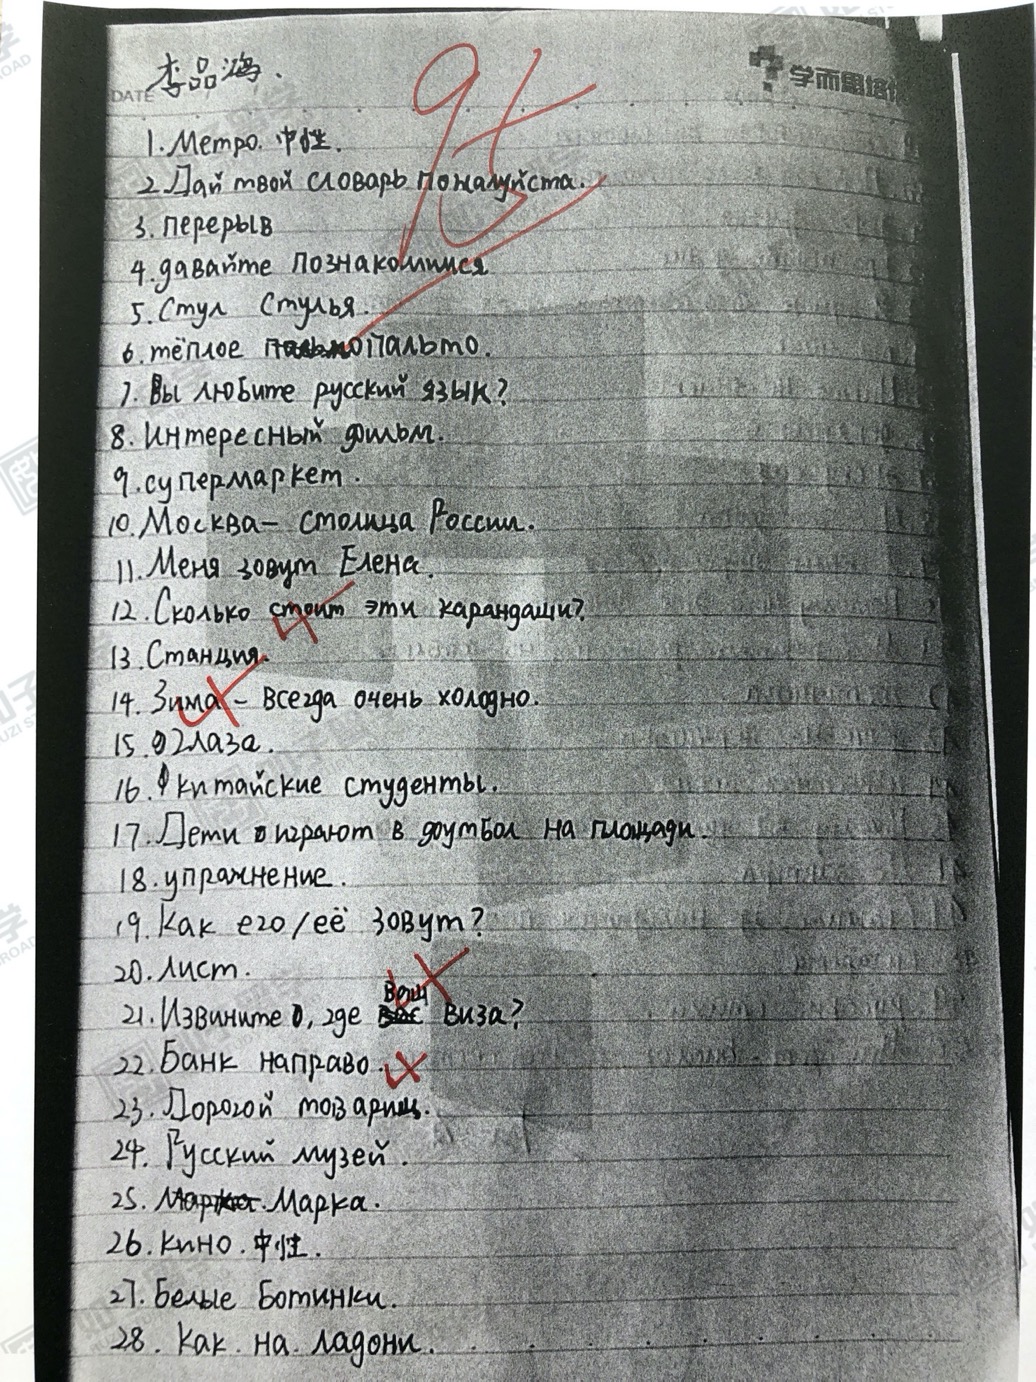 李品鸿.
DATE
学而思培优
1. Метро. 中性.
2. Дай твой словарь пожалуйста.
3. перерыв
4. давайте познакомимся
5. Стул Стулья.
6. тёплое пальто.
7. Вы любите русский язык?
8. Интересный фильм.
9. супермаркет.
10. Москва — столица России.
11. Меня зовут Елена.
12. Сколько стоит эти карандаши?
13. Станция.
14. Зима — всегда очень холодно.
15. глаза.
16. китайские студенты.
17. Дети играют в футбол на площади.
18. упражнение.
19. Как его/её зовут?
20. Лист.
21. Извините, где Ваш виза?
22. Банк направо.
23. Дорогой товарищ.
24. Русский музей.
25. Марка.
26. кино. 中性.
27. Белые Ботинки.
28. Как на ладони.